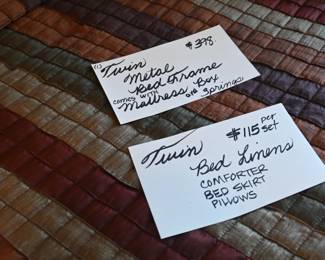 (1) Twin $398.
Metal
Bed Frame
comes with Box
Mattress and Springs
Twin $115 per set
Bed Linens
COMFORTER
BED SKIRT
PILLOWS